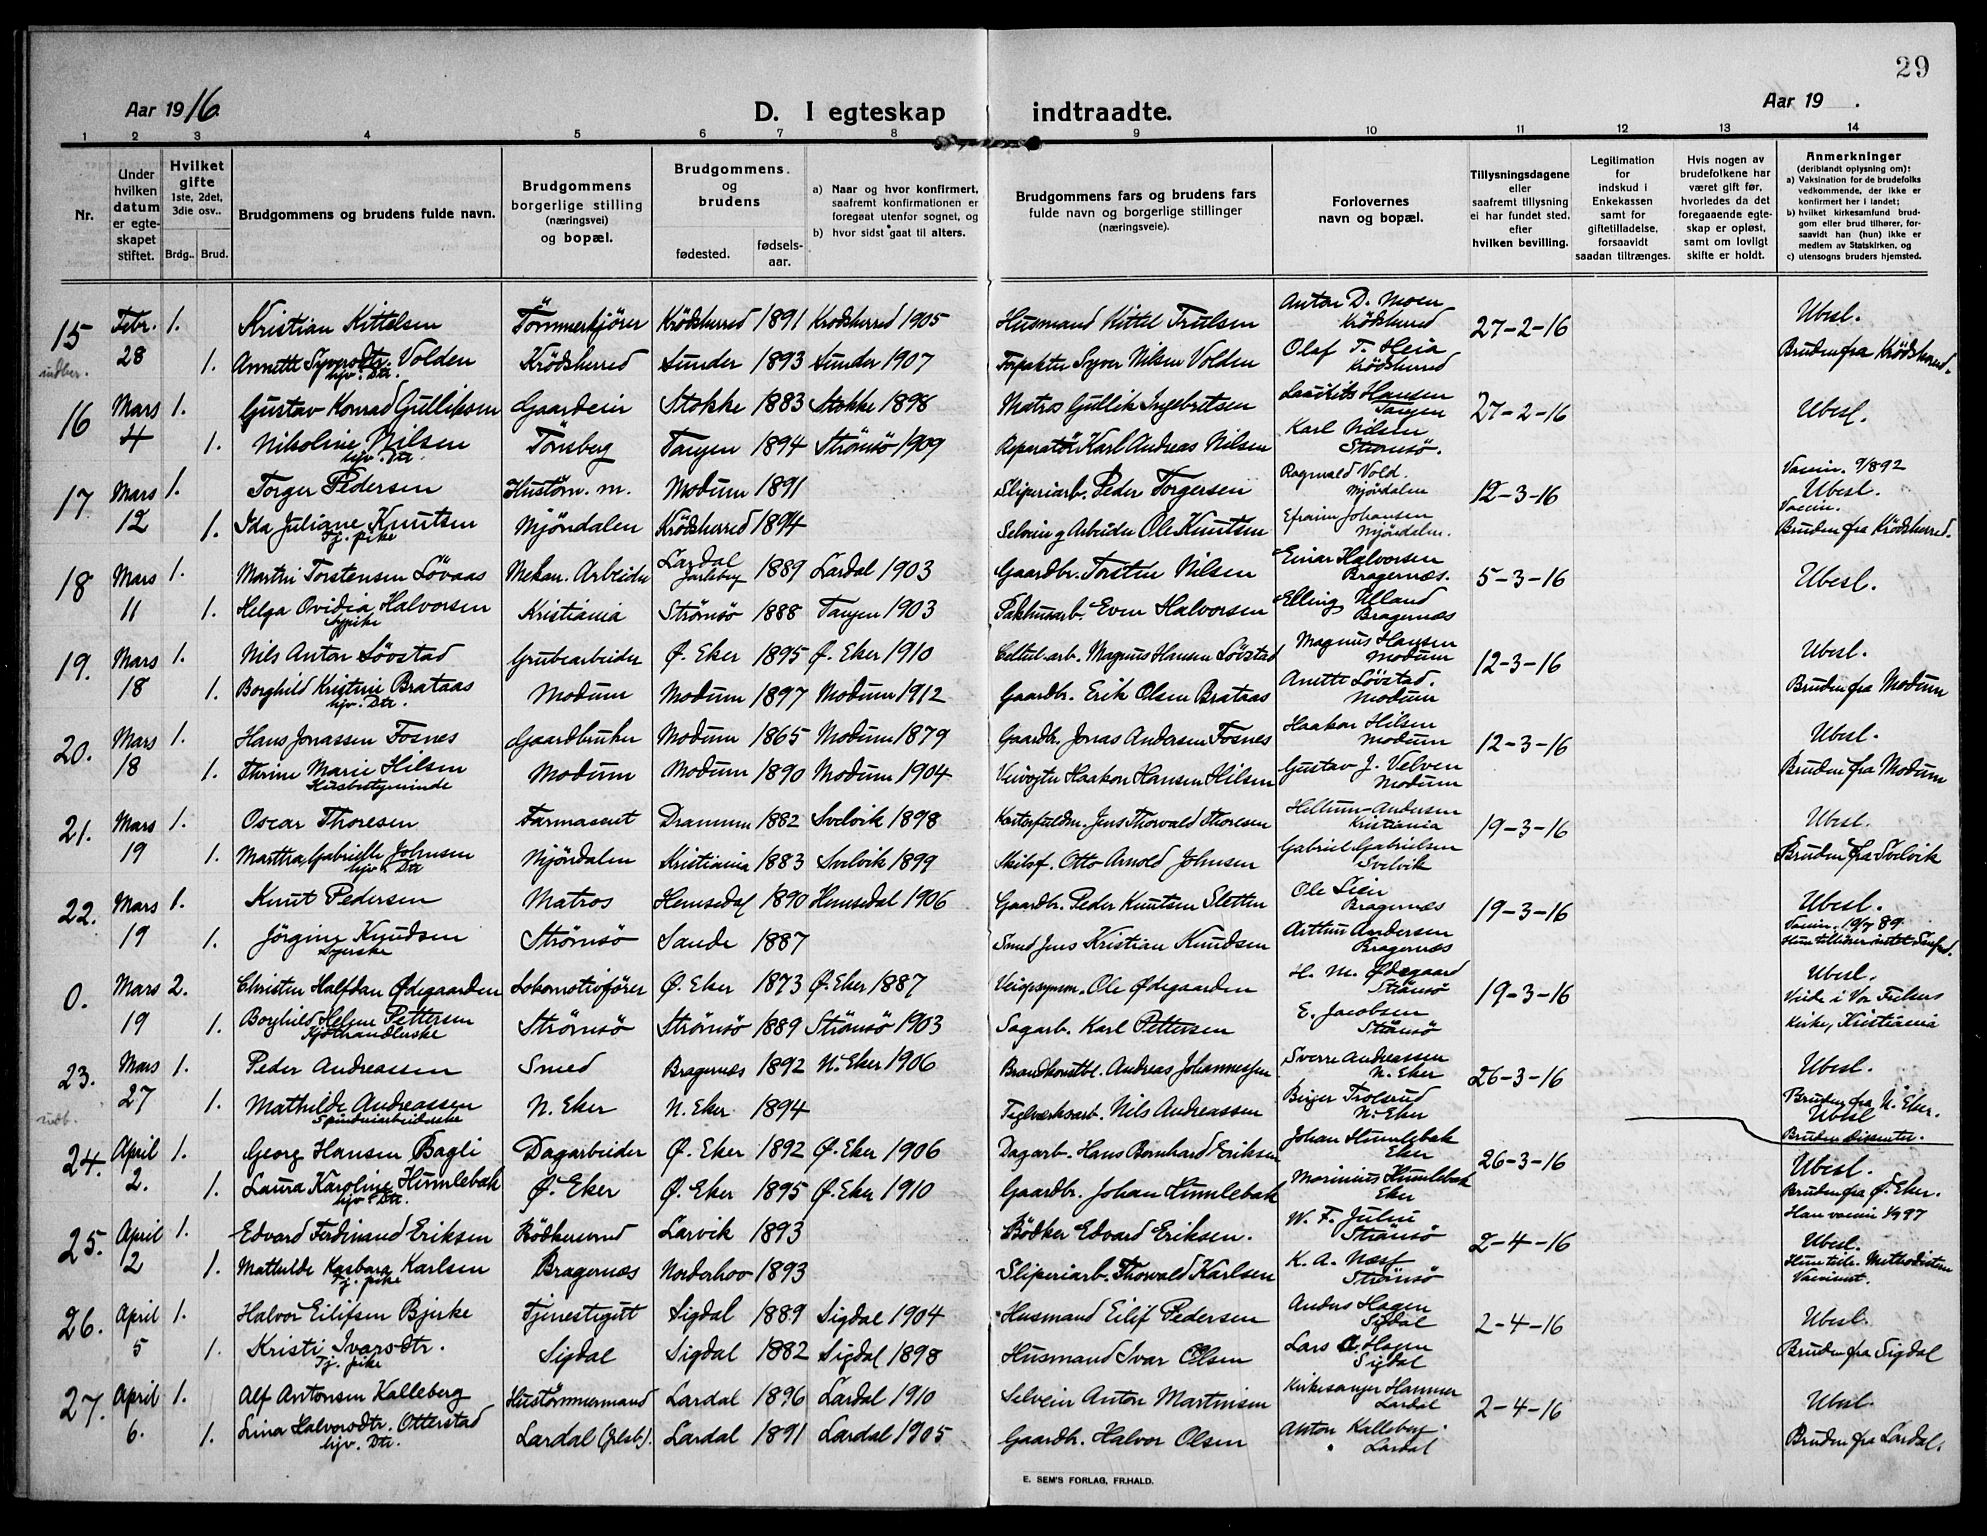 29
Aar 1916.
D. I egteskap indtraadte.
Aar 19 .
1 2 3 4 5 6 7 8 9 10 11 12 13 14
Nr.
Under hvilken datum er egteskapet stiftet.
Hvilket gifte 1ste, 2det, 3die osv..
Brdg.. Brud.
Brudgommens og brudens fulde navn.
Brudgommens borgerlige stilling (næringsvei) og bopæl.
Brudgommens og brudens
fødested. fødselsaar.
a) Naar og hvor konfirmert, saafremt konfirmationen er foregaat utenfor sognet, og
b) hvor sidst gaat til alters.
Brudgommens fars og brudens fars fulde navn og borgerlige stillinger (næringsveie).
Forlovernes navn og bopæl.
Tillysningsdagene eller saafremt tillysning ei har fundet sted, efter hvilken bevilling.
Legitimation for indskud i Enkekassen samt for giftetilladelse, forsaavidt saadan tiltrænges.
Hvis nogen av brudefolkene har været gift før, hvorledes da det foregaaende egteskap er opløst, samt om lovligt skifte er holdt.
Anmerkninger (deriblandt oplysning om): a) Vaksination for de brudefolks vedkommende, der ikke er konfirmert her i landet; b) hvilket kirkesamfund brudgom eller brud tilhører, forsaavidt han (hun) ikke er medlem av Statskirken, og c) utensogns bruders hjemsted.
15 Febr. 1. Kristian Kittelsen Tömmerkjörer Krödsherred 1891 Krödsherred 1905 Husmand Kittel Trulsen Anton D. Moen Krödsherred 27-2-16 Ubesl.
indber. 28 1. Annette Syversdtr. Volden hjv. Dtr. Krödsherred Sunder 1893 Sunder 1907 Forpakter Syver Nilsen Volden Olaf T. Heia Krödsherred Bruden fra Krödsherred.
16 Mars 1. Gustav Konrad Gulliksen Gaardeier Stokke 1883 Stokke 1898 Matros Gullik Ingebritsen Lauritz Hansen Tangen 27-2-16 Ubesl.
4 1. Nikoline Nilsen hjv. Dtr. Tönsberg Tangen 1894 Strömsö 1909 Reparatör Karl Andreas Nilsen Karl Nilsen Strömsö.
17 Mars 1. Torger Pedersen Hustöm. m. Modum 1891 Sliperiarb. Peder Torgersen Ragnvald Vold. Mjöndalen 12-3-16 Vaccin. 9/892 Ubesl.
12 1. Ida Juliane Knutsen Tj. pike Mjöndalen Krödsherred 1894 Selveier og Arbeider Ole Knutsen Efraim Johansen Mjöndalen. Vaccin. Bruden fra Krödsherred.
18 Mars 1. Martin Torstensen Lövaas Mekan. Arbeider Lardal Jarlsberg 1889 Lardal 1903 Gaardbr. Torsten Nilsen Einar Halvorsen Bragernæs. 5-3-16 Ubesl.
11 1. Helga Ovidia Halvorsen Sypike Kristiania Strömsö 1888 Tangen 1903 Pakhusarb. Even Halvorsen Elling Ulland Bragernæs
19. Mars 1. Nils Anton Lövstad Grubearbeider Ø. Eker 1895 Ø. Eker 1910 Cellul. arb. Magnus Hansen Lövstad Magnus Hansen Modum 12-3-16 Ubesl.
18 1. Borghild Kristine Brataas hjv. Dtr. Modum Modum 1897 Modum 1912 Gaardbr. Erik Olsen Brataas Anette Lövstad. Modum Bruden fra Modum
20. Mars 1. Hans Jonassen Fosnes Gaardbruker Modum 1865 Modum 1879 Gaardbr. Jonas Andersen Fosnes Haakon Hilsen Modum 12-3-16 Ubesl.
18 1. Thrine Marie Hilsen Husbestyrerinde Modum Modum 1890 Modum 1904 Veivogter Haakon Hansen Hilsen Gustav J. Velven Modum Bruden fra Modum
21. Mars 1. Oscar Thoresen Farmaceut Drammen 1882 Svelvik 1898 Jens Thorvald Thoresen Hellum-Andersen Kristiania 19-3-16 Ubesl.
19 1. Martha Gabrielle Johnsen hjv. Dtr Mjöndalen Kristiania 1883 Svelvik 1899 Skibsf. Otto Arnold Johnsen Gabriel Gabrielsen Svelvik Bruden fra Svelvik
22. Mars 1. Knut Pedersen Matros Hemsedal 1890 Hemsedal 1906 Gaardbr. Peder Knutsen Sletten Ole Lien Bragernæs 19-3-16 Ubesl.
19 1. Jörgine Knudsen Syerske Strömsö Sande 1887 Smed Jens Kristian Knudsen Arthur Andersen Bragernæs
0. Mars 2. Christen Halfdan Ødegaarden Lokomotivförer Ø. Eker 1873 Ø. Eker 1887 Veiopsynsm. Ole Ødegaarden H. M. Ødegaard Strömsö 19-3-16 Ubesl.
19 1. Borghild Helene Pettersen Kjöthandlerske Strömsö Strömsö 1889 Strömsö 1903 Sagarb. Karl Pettersen E. Jacobsen Strömsö Viede i Vor Frelsers Kirke, Kristiania
23. Mars 1. Peder Andreassen Smed Bragernæs 1892 N. Eker 1906 Brandkonstbl. Andreas Johannessen Sverre Andreassen N. Eker 26-3-16 Ubesl.
27 1. Mathilde Andreassen Spinderiarbeiderske N. Eker N. Eker 1894 Teglværksarb. Nils Andreassen Birger Trolsrud N. Eker Bruden fra N. Eker. Ubesl Bruden dissenter.
24. April 1. Georg Hansen Bagli Dagarbeider Ø. Eker 1892 Ø. Eker 1906 Dagarb. Hans Bernhard Eriksen Johan Humlebæk Eker 26-3-16 Ubesl.
2. 1. Laura Karoline Humlebæk hjv. Dtr. Ø. Eker Ø. Eker 1895 Ø. Eker 1910 Gaardbr. Johan Humlebæk Marinius Humlebæk Eker Bruden fra Ø. Eker.
25. April 1. Edvard Ferdinand Eriksen Bödkersvend Larvik 1893 Bödker Edvard Eriksen. W. F. Juliu Strömsö 2-4-16 Ubesl.
2 1. Mathilde Karlsen Tj. pike Bragernæs Norderhov 1893 Sliperiarb. Thorvald Karlsen K. A. Næss Strömsö
26. April 1. Halvor Eilifsen Bjerke Tjenestegut Sigdal 1889 Sigdal 1904 Husmand Eilif Pedersen Anders Hagen Sigdal 2-4-16 Ubesl.
5 1. Kristi Ivarsdtr. Tj. pike Sigdal Sigdal 1882 Sigdal 1898 Husmand Ivar Olsen Lars A. Hagen Sigdal Bruden fra Sigdal
27. April 1. Alf Antonsen Kalleberg Hustömmermand Lardal 1896 Lardal 1910 Selveier Anton Martinsen Kirkesanger Hammer Lardal 2-4-16 Ubesl.
6. 1. Lina Halvorsdtr. Otterstad hjv. Dtr. Lardal (Jrlsb). Lardal 1891 Lardal 1905 Gaardbr. Halvor Olsen Anton Kalleberg Lardal Bruden fra Lardal.
E. SEM'S FORLAG, FR.HALD.